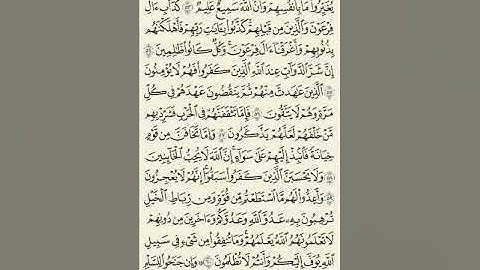 يُغَيِّرُوا۟ مَا بِأَنفُسِهِمْ وَأَنَّ ٱللَّهَ سَمِيعٌ عَلِيمٌ ٥٣ كَدَأْبِ ءَالِ
فِرْعَوْنَ وَٱلَّذِينَ مِن قَبْلِهِمْ كَذَّبُوا۟ بِـَٔايَـٰتِ رَبِّهِمْ فَأَهْلَكْنَـٰهُم
بِذُنُوبِهِمْ وَأَغْرَقْنَآ ءَالَ فِرْعَوْنَ وَكُلٌّ كَانُوا۟ ظَـٰلِمِينَ ٥٤
إِنَّ شَرَّ ٱلدَّوَآبِّ عِندَ ٱللَّهِ ٱلَّذِينَ كَفَرُوا۟ فَهُمْ لَا يُؤْمِنُونَ
٥٥ ٱلَّذِينَ عَـٰهَدتَّ مِنْهُمْ ثُمَّ يَنقُضُونَ عَهْدَهُمْ فِى كُلِّ
مَرَّةٍ وَهُمْ لَا يَتَّقُونَ ٥٦ فَإِمَّا تَثْقَفَنَّهُمْ فِى ٱلْحَرْبِ فَشَرِّدْ بِهِم
مَّنْ خَلْفَهُمْ لَعَلَّهُمْ يَذَّكَّرُونَ ٥٧ وَإِمَّا تَخَافَنَّ مِن قَوْمٍ
خِيَانَةً فَٱنۢبِذْ إِلَيْهِمْ عَلَىٰ سَوَآءٍ إِنَّ ٱللَّهَ لَا يُحِبُّ ٱلْخَآئِنِينَ
٥٨ وَلَا يَحْسَبَنَّ ٱلَّذِينَ كَفَرُوا۟ سَبَقُوٓا۟ إِنَّهُمْ لَا يُعْجِزُونَ
٥٩ وَأَعِدُّوا۟ لَهُم مَّا ٱسْتَطَعْتُم مِّن قُوَّةٍ وَمِن رِّبَاطِ ٱلْخَيْلِ
تُرْهِبُونَ بِهِۦ عَدُوَّ ٱللَّهِ وَعَدُوَّكُمْ وَءَاخَرِينَ مِن دُونِهِمْ
لَا تَعْلَمُونَهُمُ ٱللَّهُ يَعْلَمُهُمْ وَمَا تُنفِقُوا۟ مِن شَىْءٍ فِى سَبِيلِ
ٱللَّهِ يُوَفَّ إِلَيْكُمْ وَأَنتُمْ لَا تُظْلَمُونَ ٦٠ وَإِن جَنَحُوا۟ لِلسَّلْمِ